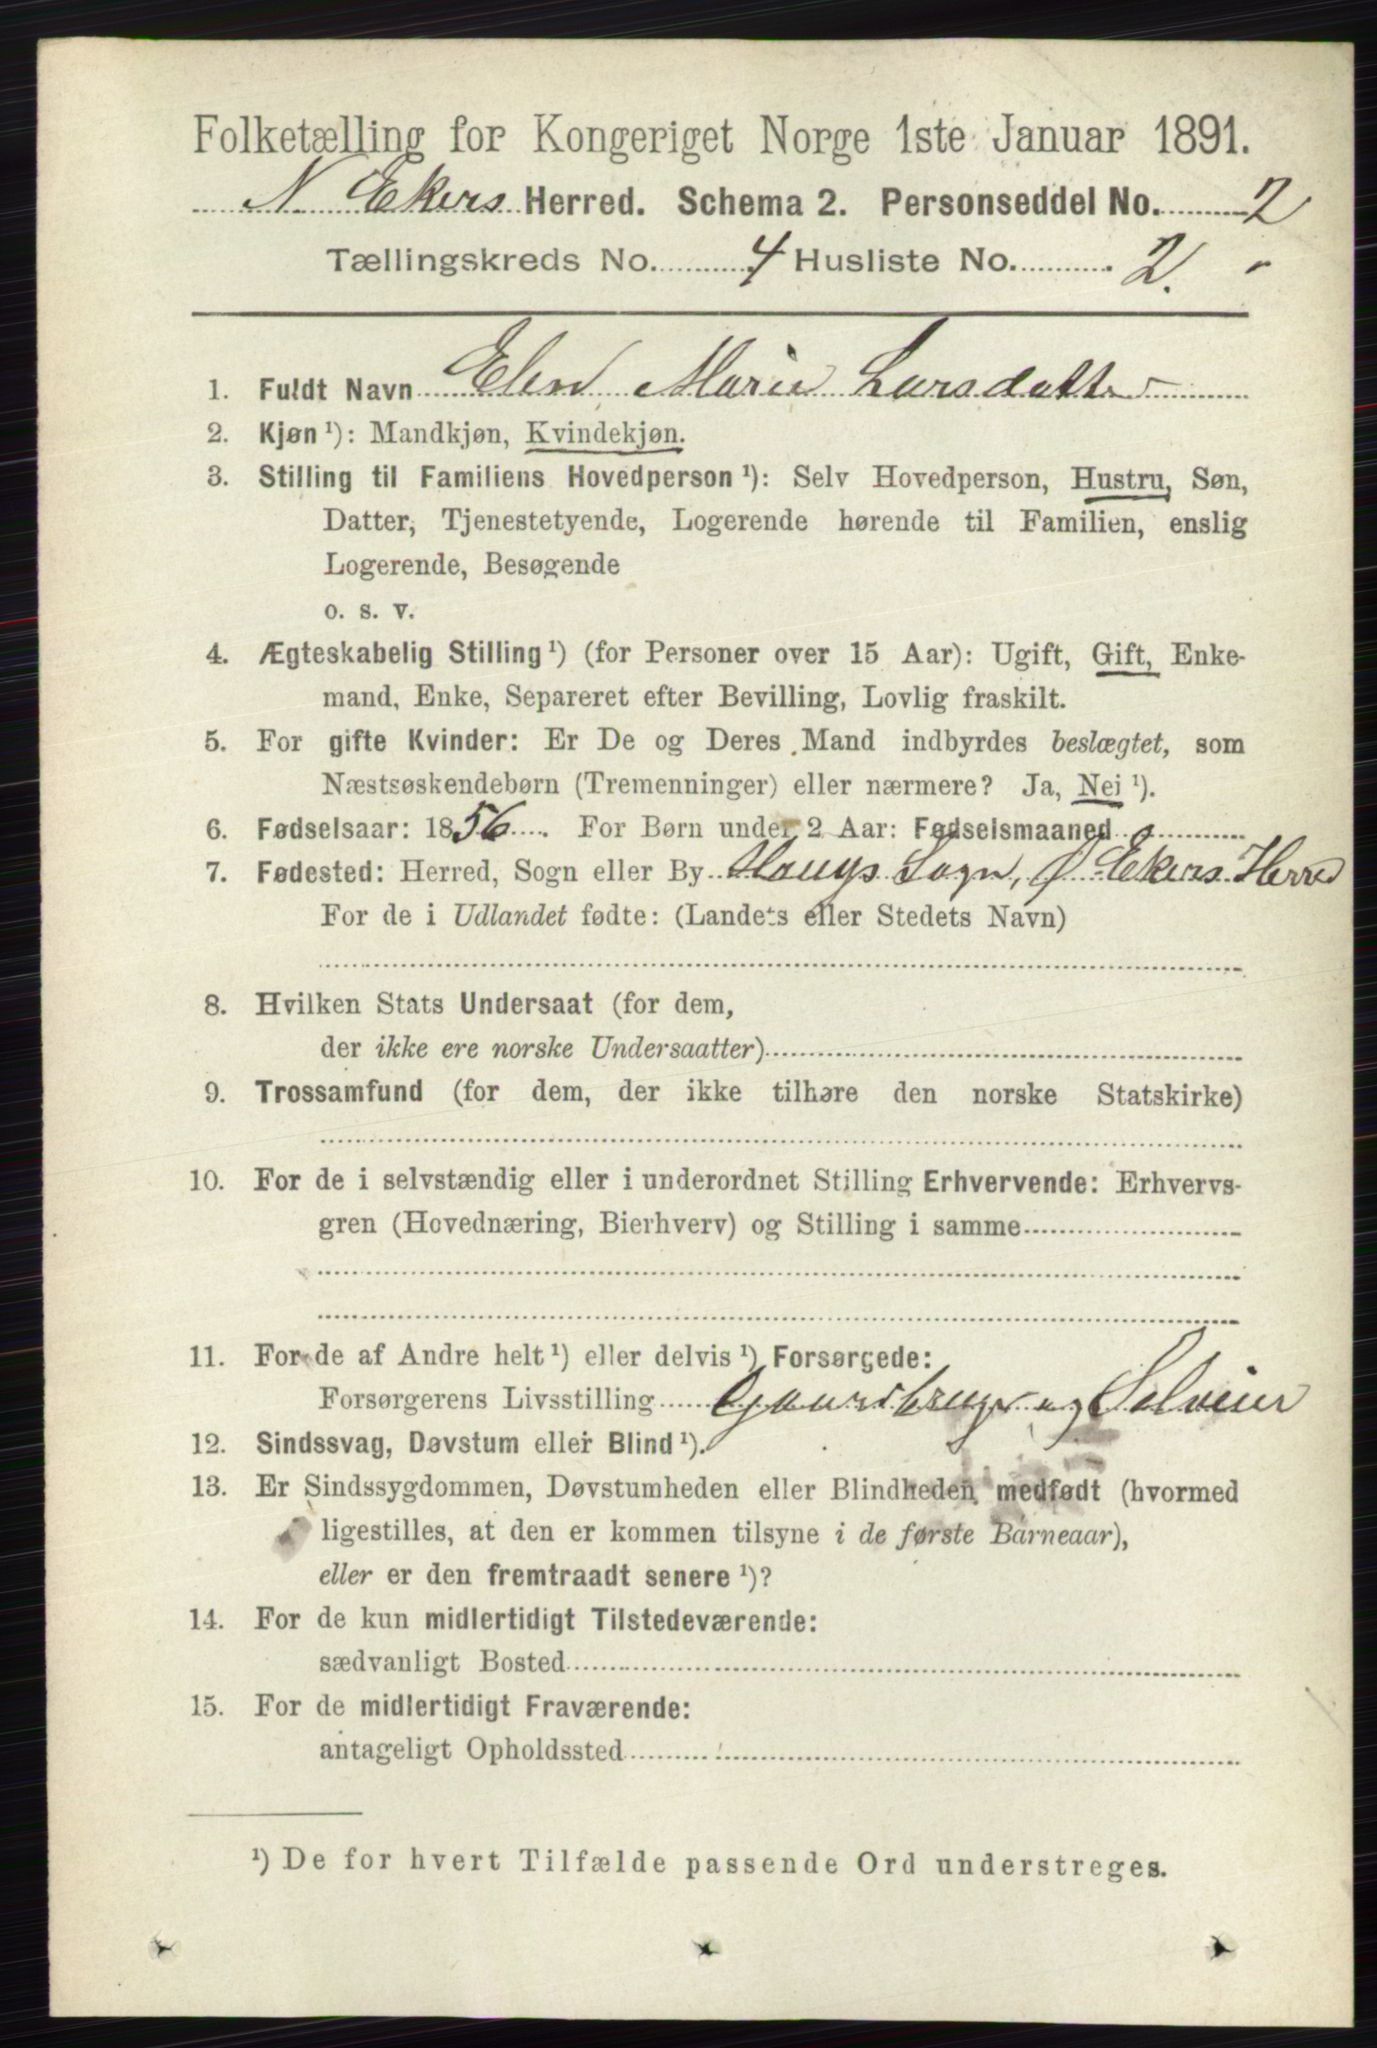 Folketælling for Kongeriget Norge 1ste Januar 1891.
N Ekers Herred. Schema 2. Personseddel No. 2
Tællingskreds No. 4 Husliste No. 2.
1. Fuldt Navn Elen Marie Larsdatter
2. Kjøn ¹): Mandkjøn, Kvindekjøn.
3. Stilling til Familiens Hovedperson ¹): Selv Hovedperson, Hustru, Søn,
Datter, Tjenestetyende, Logerende hørende til Familien, enslig
Logerende, Besøgende
o. s. v.
4. Ægteskabelig Stilling ¹) (for Personer over 15 Aar): Ugift, Gift, Enke-
mand, Enke, Separeret efter Bevilling, Lovlig fraskilt.
5. For gifte Kvinder: Er De og Deres Mand indbyrdes beslægtet, som
Næstsøskendebørn (Tremenninger) eller nærmere? Ja, Nei ¹).
6. Fødselsaar: 1856. For Børn under 2 Aar: Fødselsmaaned
7. Fødested: Herred, Sogn eller By Hougs Sogn, Ø Ekers Herred
For de i Udlandet fødte: (Landets eller Stedets Navn)
8. Hvilken Stats Undersaat (for dem,
der ikke ere norske Undersaatter)
9. Trossamfund (for dem, der ikke tilhøre den norske Statskirke)
10. For de i selvstændig eller i underordnet Stilling Erhvervende: Erhvervs-
gren (Hovednæring, Bierhverv) og Stilling i samme
11. For de af Andre helt ¹) eller delvis ¹) Forsørgede:
Forsørgerens Livsstilling Gaardbruger og Selveier
12. Sindssvag, Døvstum eller Blind ¹).
13. Er Sindssygdommen, Døvstumheden eller Blindheden medfødt (hvormed
ligestilles, at den er kommen tilsyne i de første Barneaar),
eller er den fremtraadt senere ¹)?
14. For de kun midlertidigt Tilstedeværende:
sædvanligt Bosted
15. For de midlertidigt Fraværende:
antageligt Opholdssted
¹) De for hvert Tilfælde passende Ord understreges.